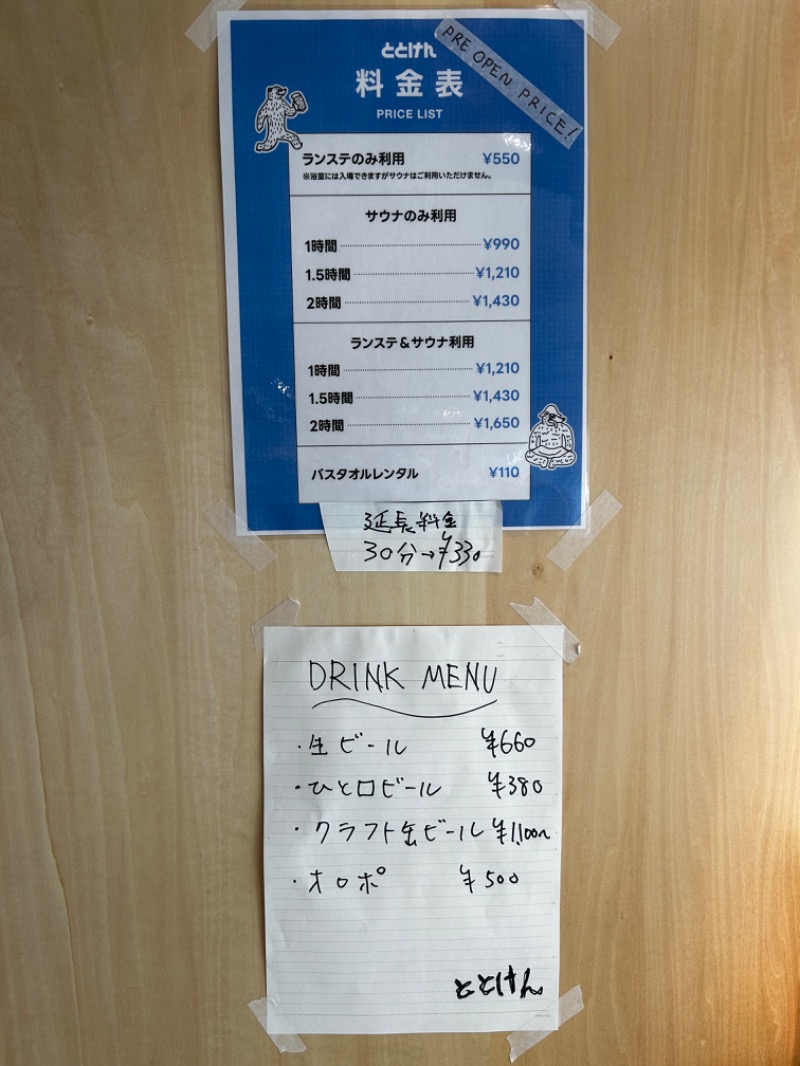 ととけん
PRE OPEN PRICE!
料金表
PRICE LIST
ランステのみ利用 ¥550
※浴室には入場できますがサウナはご利用いただけません。
サウナのみ利用
1時間 ¥990
1.5時間 ¥1,210
2時間 ¥1,430
ランステ&サウナ利用
1時間 ¥1,210
1.5時間 ¥1,430
2時間 ¥1,650
バスタオルレンタル ¥110
延長料金
30分→¥330
DRINK MENU
・生ビール ¥660
・ひと口ビール ¥380
・クラフト缶ビール ¥1,100~
・オロポ ¥500
ととけん